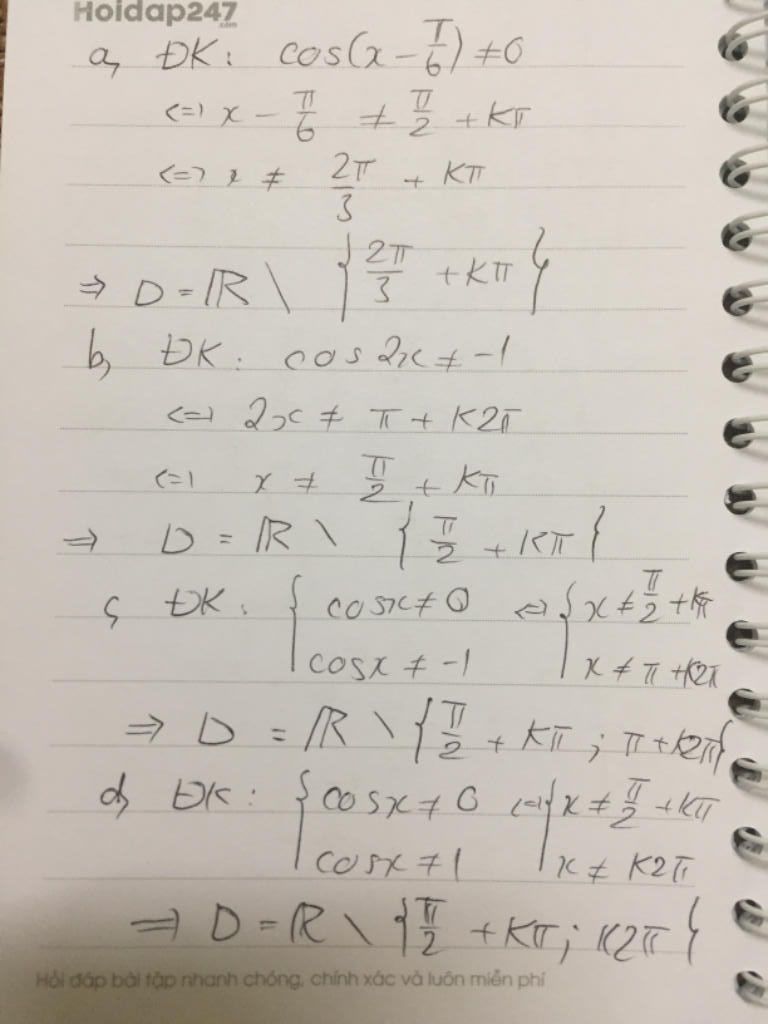 Hoidap247
.com
a, ĐK: cos(x - π/6) ≠ 0
<=> x - π/6 ≠ π/2 + kπ
<=> x ≠ 2π/3 + kπ
=> D = ℝ \ { 2π/3 + kπ }
b, ĐK: cos 2x ≠ -1
<=> 2x ≠ π + k2π
<=> x ≠ π/2 + kπ
=> D = ℝ \ { π/2 + kπ }
c, ĐK: { cosx ≠ 0 <=> { x ≠ π/2 + kπ
cosx ≠ -1 x ≠ π + k2π
=> D = ℝ \ { π/2 + kπ ; π + k2π }
d, ĐK: { cosx ≠ 0 <=> { x ≠ π/2 + kπ
cosx ≠ 1 x ≠ k2π
=> D = ℝ \ { π/2 + kπ ; k2π }
Hỏi đáp bài tập nhanh chóng, chính xác và luôn miễn phí